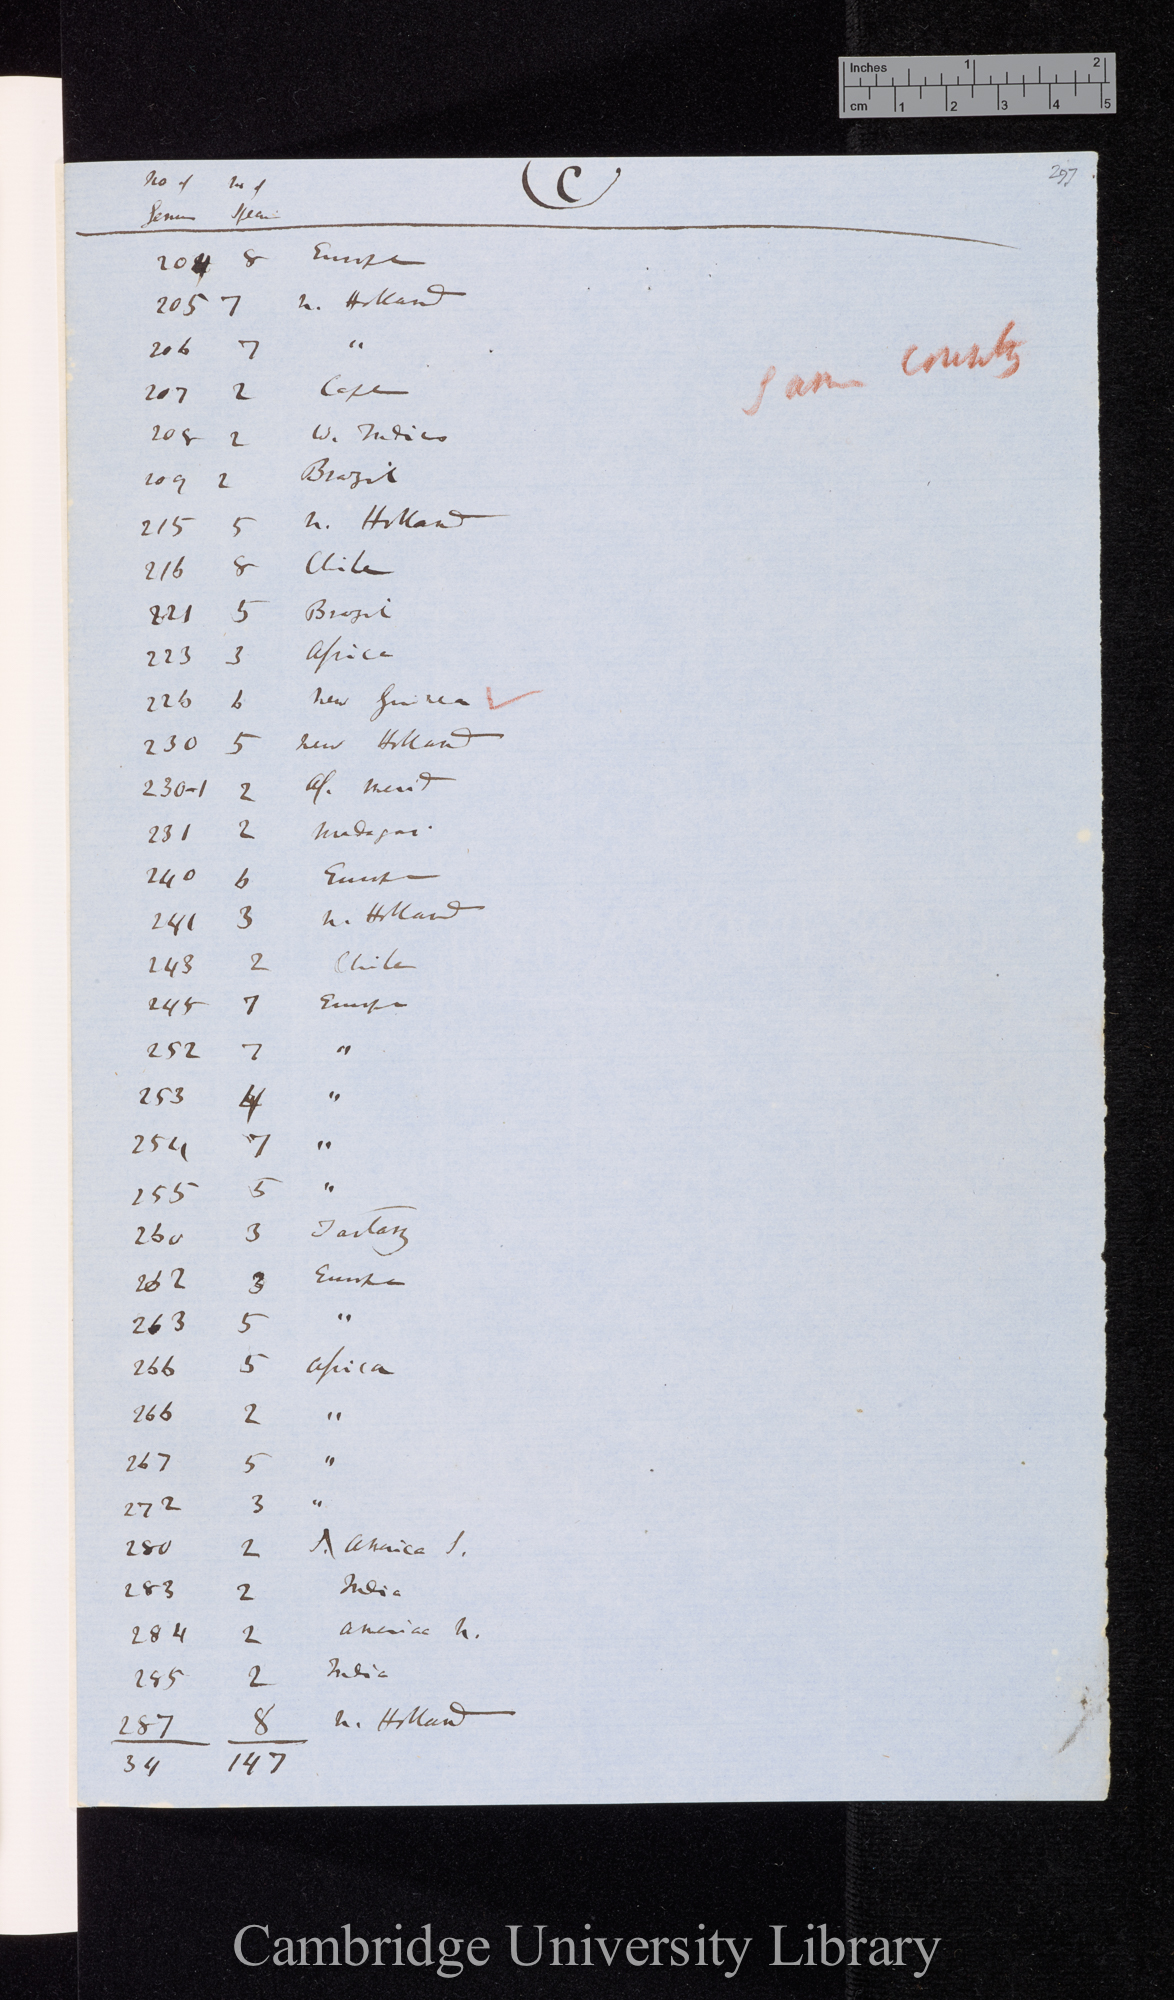 Inches 1 2
cm 1 2 3 4 5
No of No of (C) 297
Genus Species
204 8 Europe
205 7 N. Holland
206 7 "
207 2 Cape
208 2 W. Indies
209 2 Brazil
215 5 N. Holland
216 8 Chile
221 5 Brazil
223 3 Africa
226 6 New Guinea ✓
230 5 New Holland
230-1 2 Af. Merid
231 2 Madagas.
240 6 Europe
241 3 N. Holland
243 2 Chile
248 7 Europe
252 7 "
253 4 "
254 7 "
255 5 "
260 3 Tartary
262 3 Europe
263 5 "
266 5 Africa
266 2 "
267 5 "
272 3 "
280 2 America S.
283 2 India
284 2 America N.
285 2 India
287 8 N. Holland
34 147
Same Country
Cambridge University Library